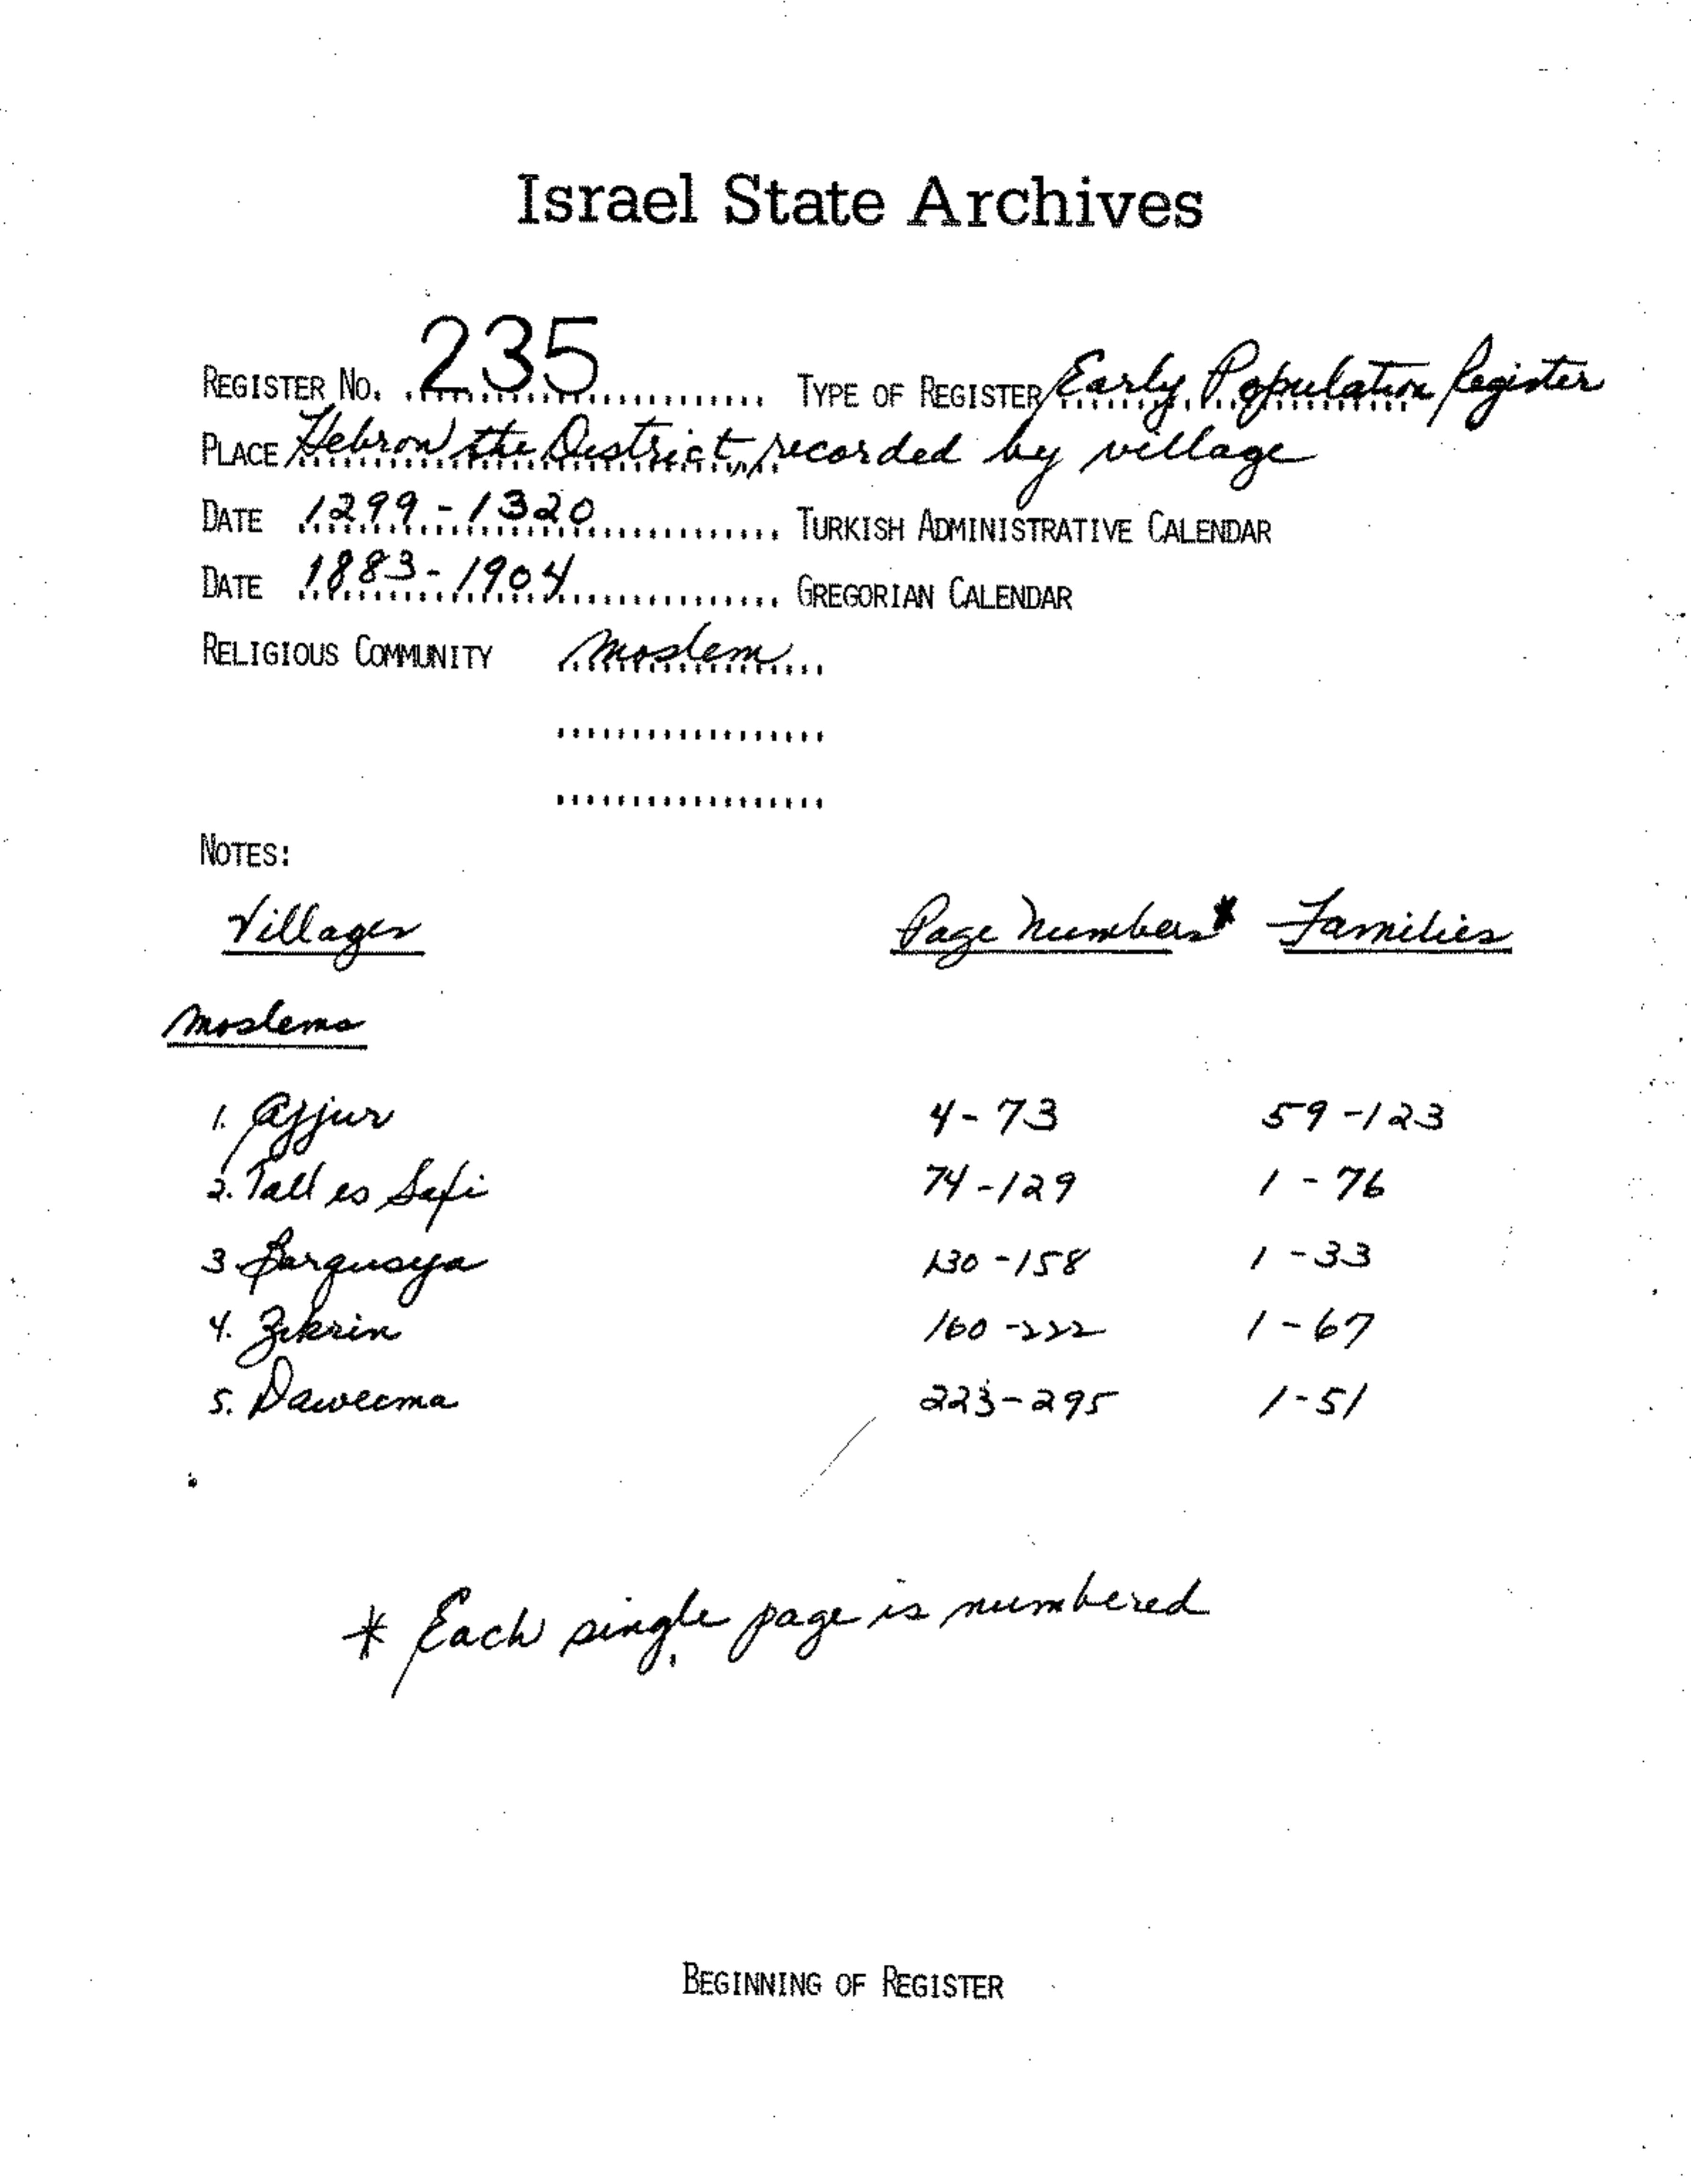 Israel State Archives
REGISTER NO. 235 TYPE OF REGISTER Early Population Register
PLACE Hebron the District, recorded by village
DATE 1299-1320 TURKISH ADMINISTRATIVE CALENDAR
DATE 1883-1904 GREGORIAN CALENDAR
RELIGIOUS COMMUNITY Moslem
NOTES:
Villages Page Numbers* Families
Moslems
1. Ajjur 4-73 59-123
2. Tall es Safi 74-129 1-76
3. Barqusya 130-158 1-33
4. Zikrin 160-222 1-67
5. Daweema 223-295 1-51
* Each single page is numbered
BEGINNING OF REGISTER